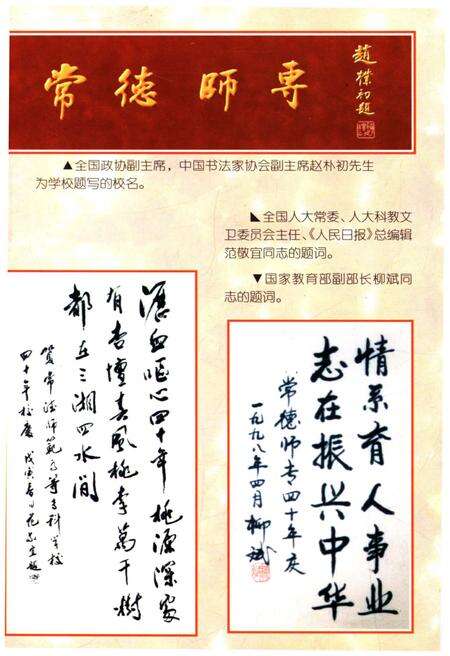 常德師専
趙樸初題
▲全国政协副主席，中国书法家协会副主席赵朴初先生
为学校题写的校名。
◣全国人大常委、人大科教文
卫委员会主任、《人民日报》总编辑
范敬宜同志的题词。
▼国家教育部副部长柳斌同
志的题词。
瀝血呕心四十年桃源深处
有杏壇春風桃李萬千樹
都在三湘四水间
賀常德師範高等专科学校
四十年校慶 戊寅春日范敬宜题
情系育人事业
志在振兴中华
常德师专四十年庆
一九九八年四月柳斌